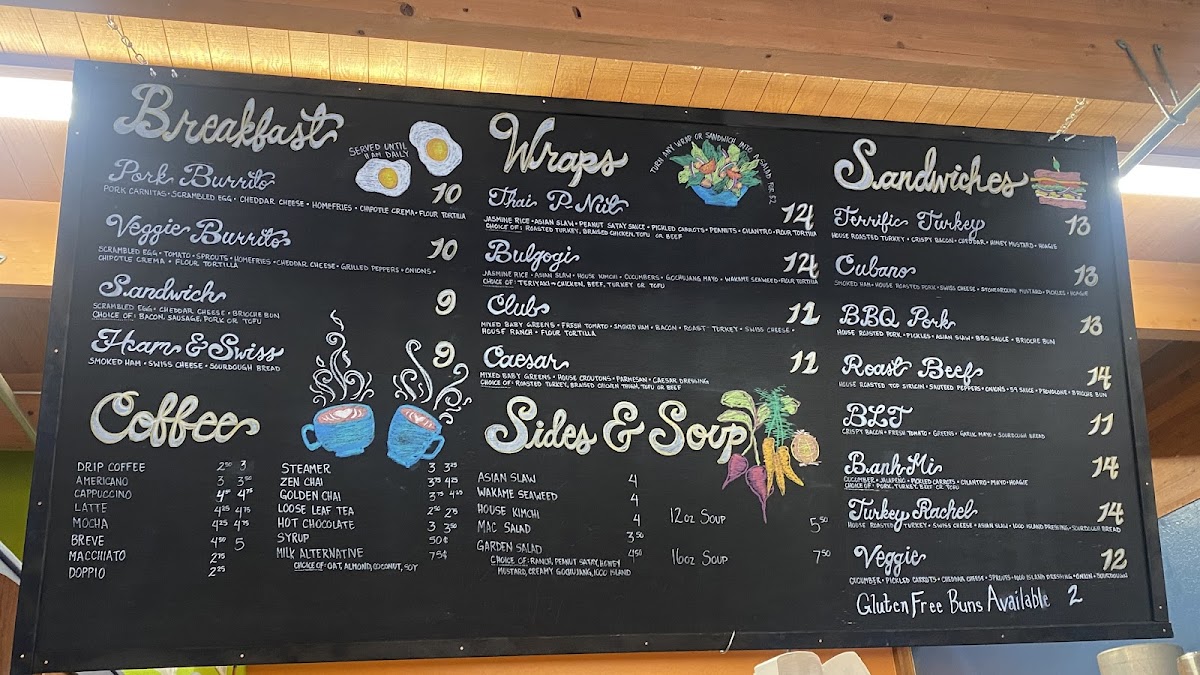 Breakfast
SERVED UNTIL
11 AM DAILY
Pork Burrito 10
PORK CARNITAS • SCRAMBLED EGG • CHEDDAR CHEESE • HOMEFRIES • CHIPOTLE CREMA • FLOUR TORTILLA
Veggie Burrito 10
SCRAMBLED EGG • TOMATO • SPROUTS • HOMEFRIES • CHEDDAR CHEESE • GRILLED PEPPERS • ONIONS •
CHIPOTLE CREMA • FLOUR TORTILLA
Sandwich 9
SCRAMBLED EGG • CHEDDAR CHEESE • BRIOCHE BUN
CHOICE OF: BACON, SAUSAGE, PORK OR TOFU
Ham & Swiss 9
SMOKED HAM • SWISS CHEESE • SOURDOUGH BREAD
Coffee
DRIP COFFEE 2⁵⁰ 3
AMERICANO 3 3⁵⁰
CAPPUCCINO 4²⁵ 4⁷⁵
LATTE 4²⁵ 4⁷⁵
MOCHA 4²⁵ 4⁷⁵
BREVE 4⁵⁰ 5
MACCHIATO 2⁷⁵
DOPPIO 2²⁵
STEAMER 3 3²⁵
ZEN CHAI 3⁷⁵ 4²⁵
GOLDEN CHAI 3⁷⁵ 4²⁵
LOOSE LEAF TEA 2⁵⁰ 2⁷⁵
HOT CHOCOLATE 3 3⁵⁰
SYRUP 50¢
MILK ALTERNATIVE 75¢
CHOICE OF: OAT, ALMOND, COCONUT, SOY
Wraps
TURN ANY WRAP OR SANDWICH INTO A SALAD FOR $2
Thai P-Nut 12
JASMINE RICE • ASIAN SLAW • PEANUT SATAY SAUCE • PICKLED CARROTS • PEANUTS • CILANTRO • FLOUR TORTILLA
CHOICE OF: ROASTED TURKEY, BRAISED CHICKEN, TOFU OR BEEF
Bulgogi 12
JASMINE RICE • ASIAN SLAW • HOUSE KIMCHI • CUCUMBERS • GOCHUJANG MAYO • WAKAME SEAWEED • FLOUR TORTILLA
CHOICE OF: TERIYAKI - CHICKEN, BEEF, TURKEY OR TOFU
Club 12
MIXED BABY GREENS • FRESH TOMATO • SMOKED HAM • BACON • ROAST TURKEY • SWISS CHEESE •
HOUSE RANCH • FLOUR TORTILLA
Caesar 12
MIXED BABY GREENS • HOUSE CROUTONS • PARMESAN • CAESAR DRESSING
CHOICE OF: ROASTED TURKEY, BRAISED CHICKEN THIGH, TOFU OR BEEF
Sides & Soup
ASIAN SLAW 4
WAKAME SEAWEED 4
HOUSE KIMCHI 4
MAC SALAD 3⁵⁰
GARDEN SALAD 4⁵⁰
CHOICE OF: RANCH, PEANUT SATAY, HONEY
MUSTARD, CREAMY GOCHUJANG, 1000 ISLAND
12oz SOUP 5⁵⁰
16oz SOUP 7⁵⁰
Sandwiches
Terrific Turkey 13
HOUSE ROASTED TURKEY • CRISPY BACON • CHEDDAR • HONEY MUSTARD • HOAGIE
Cubano 13
SMOKED HAM • HOUSE ROASTED PORK • SWISS CHEESE • STONEGROUND MUSTARD • PICKLES • HOAGIE
BBQ Pork 13
HOUSE ROASTED PORK • PICKLES • ASIAN SLAW • BBQ SAUCE • BRIOCHE BUN
Roast Beef 14
HOUSE ROASTED TOP SIRLOIN • SAUTEED PEPPERS • ONIONS • 59 SAUCE • PROVOLONE • BRIOCHE BUN
BLT 11
CRISPY BACON • FRESH TOMATO • GREENS • GARLIC MAYO • SOURDOUGH BREAD
Banh Mi 14
CUCUMBER • JALAPEÑO • PICKLED CARROTS • CILANTRO • MAYO • HOAGIE
CHOICE OF: PORK, TURKEY, BEEF OR TOFU
Turkey Rachel 14
HOUSE ROASTED TURKEY • SWISS CHEESE • ASIAN SLAW • 1000 ISLAND DRESSING • SOURDOUGH BREAD
Veggie 12
CUCUMBER • PICKLED CARROTS • CHEDDAR CHEESE • SPROUTS • 1000 ISLAND DRESSING • ONION •
Gluten Free Buns Available 2